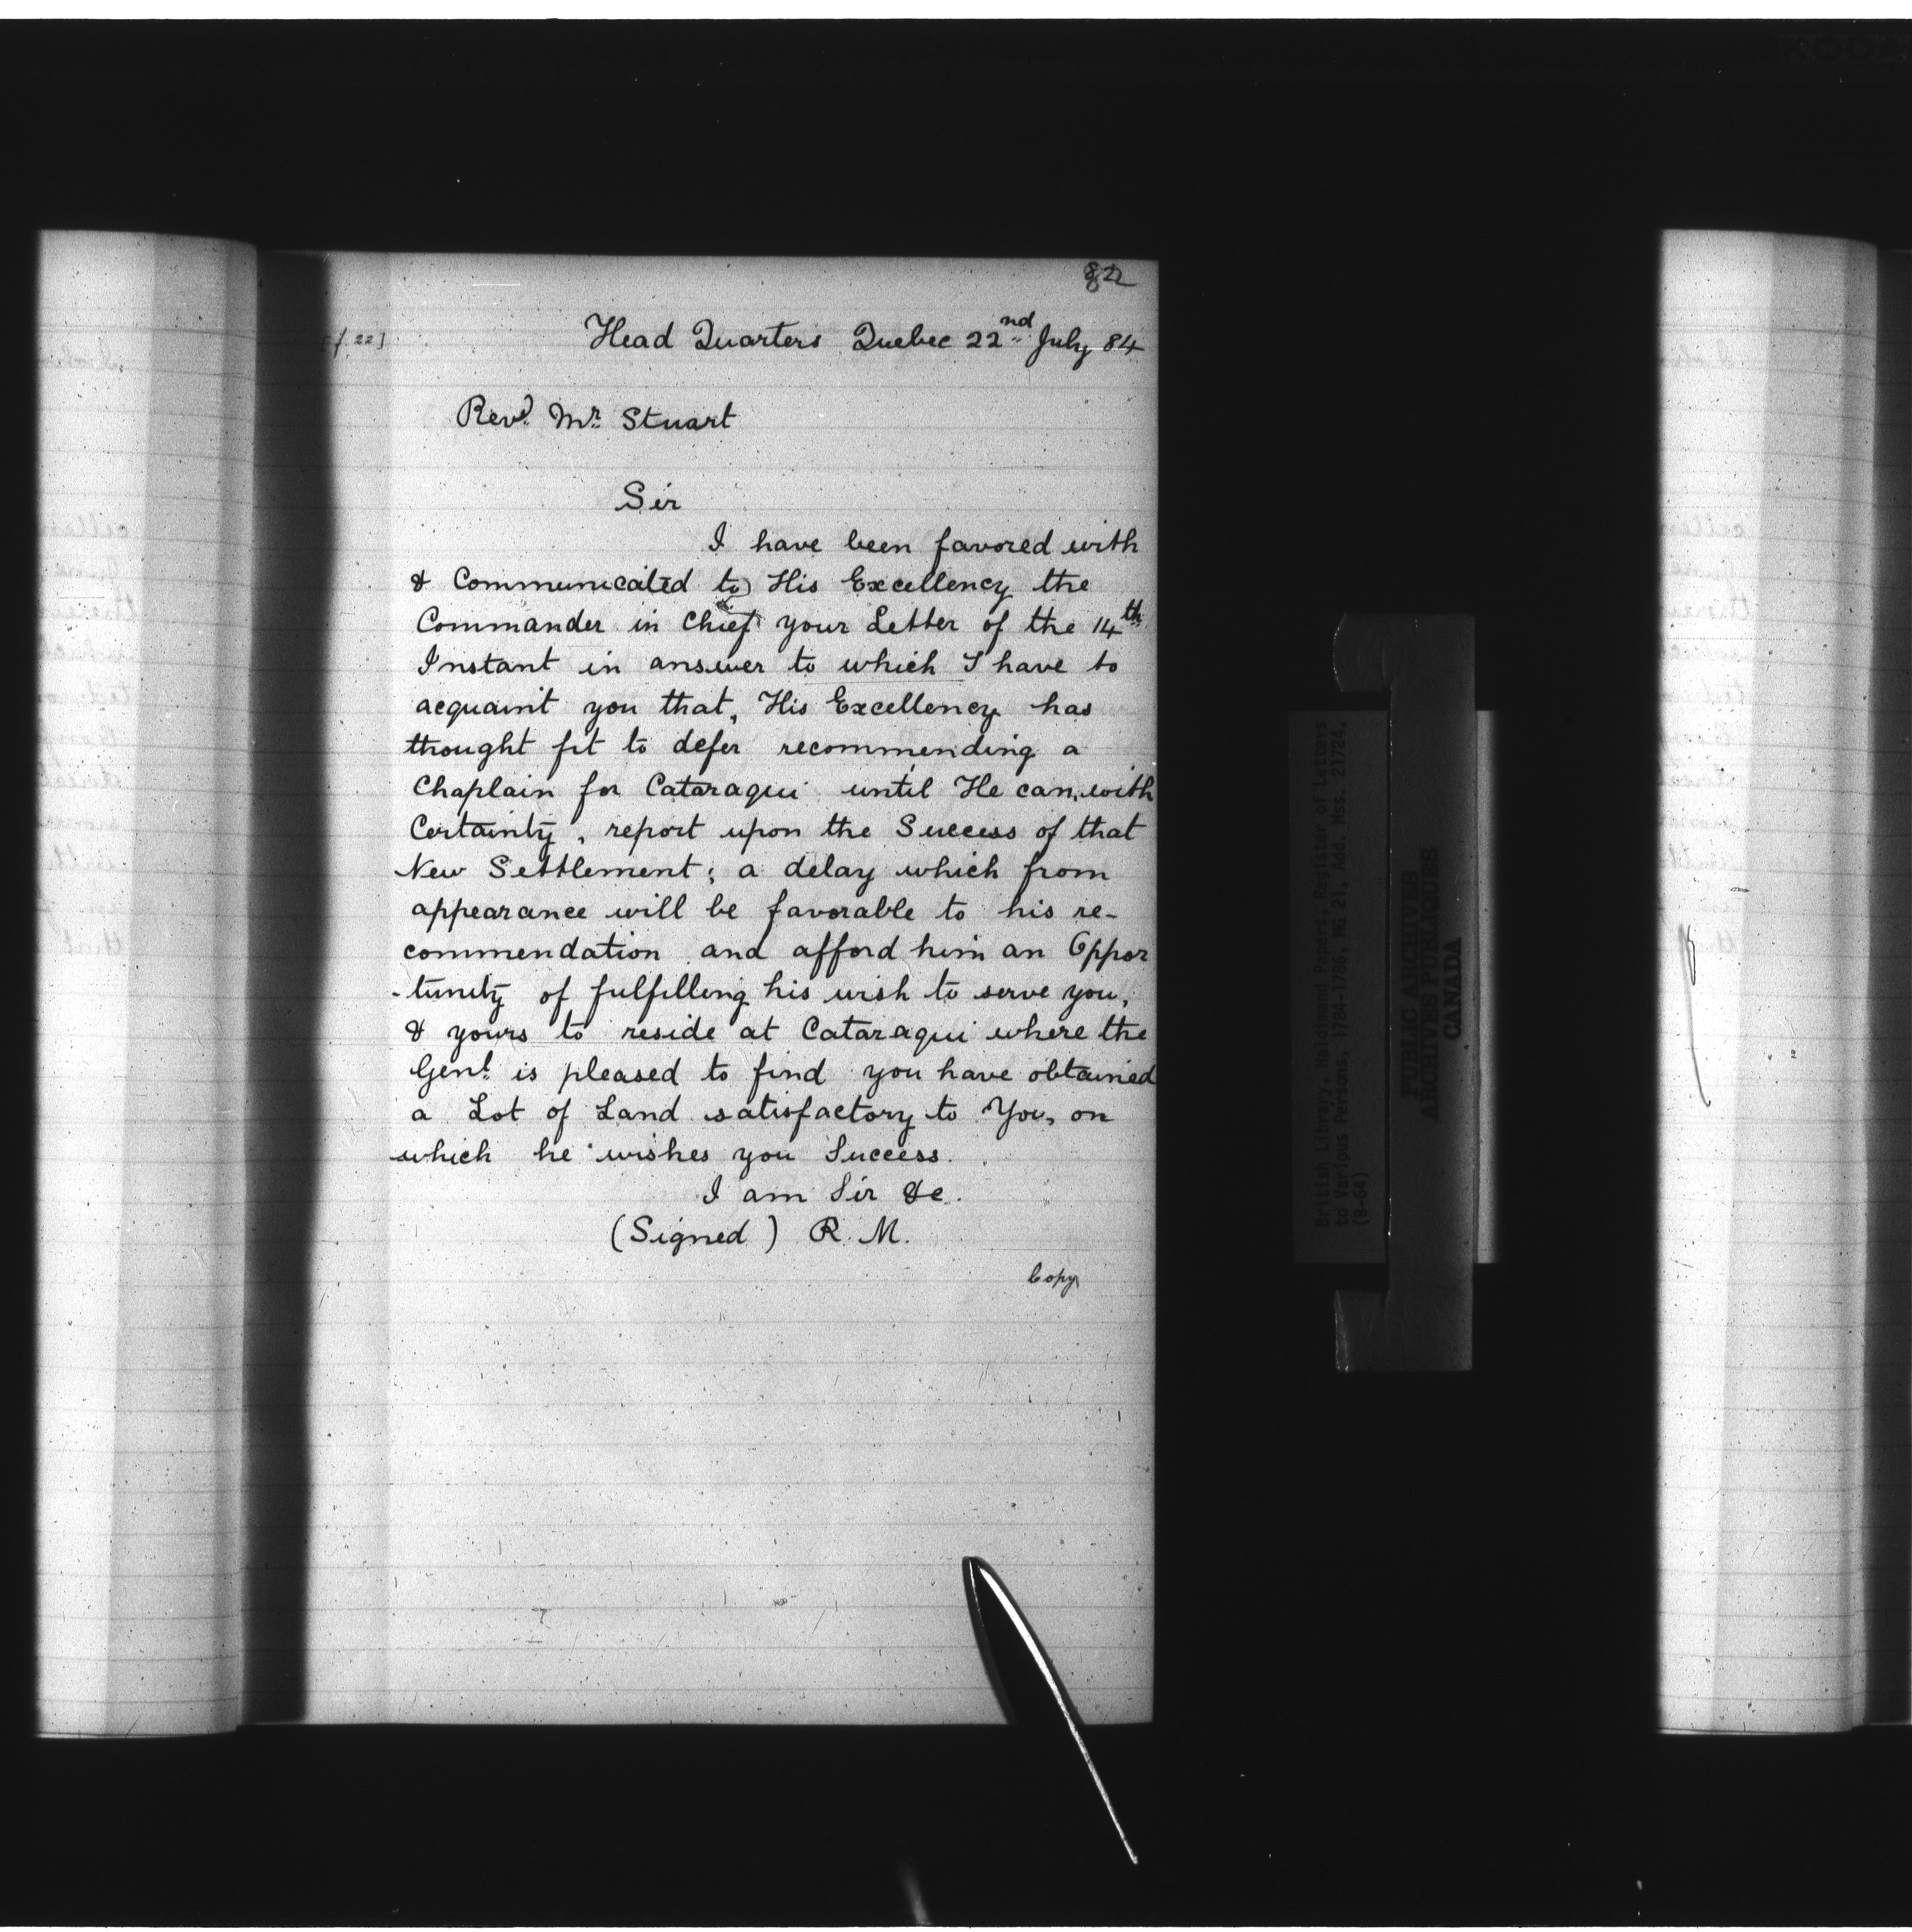 82
[f 22]
Head Quarters Quebec 22nd July 84
Revd. Mr. Stuart
Sir
I have been favored with
& Communicated to His Excellency the
Commander in Chief your Letter of the 14th
Instant in answer to which I have to
acquaint you that, His Excellency has
thought fit to defer recommending a
Chaplain for Cataraqui until He can, with
Certainty, report upon the Success of that
New Settlement; a delay which from
appearance will be favorable to his re-
commendation and afford him an Oppor
-tunity of fulfilling his wish to serve you,
& yours to reside at Cataraqui where the
Genl. is pleased to find you have obtained
a Lot of Land satisfactory to You, on
which he wishes you Success.
I am Sir &c.
(Signed) R. M.
Copy
British Library, Haldimand Papers. Register of Letters
to Various Persons, 1784-1786, MG 21, Add. Mss. 21724,
(B-64)
PUBLIC ARCHIVES
ARCHIVES PUBLIQUES
CANADA